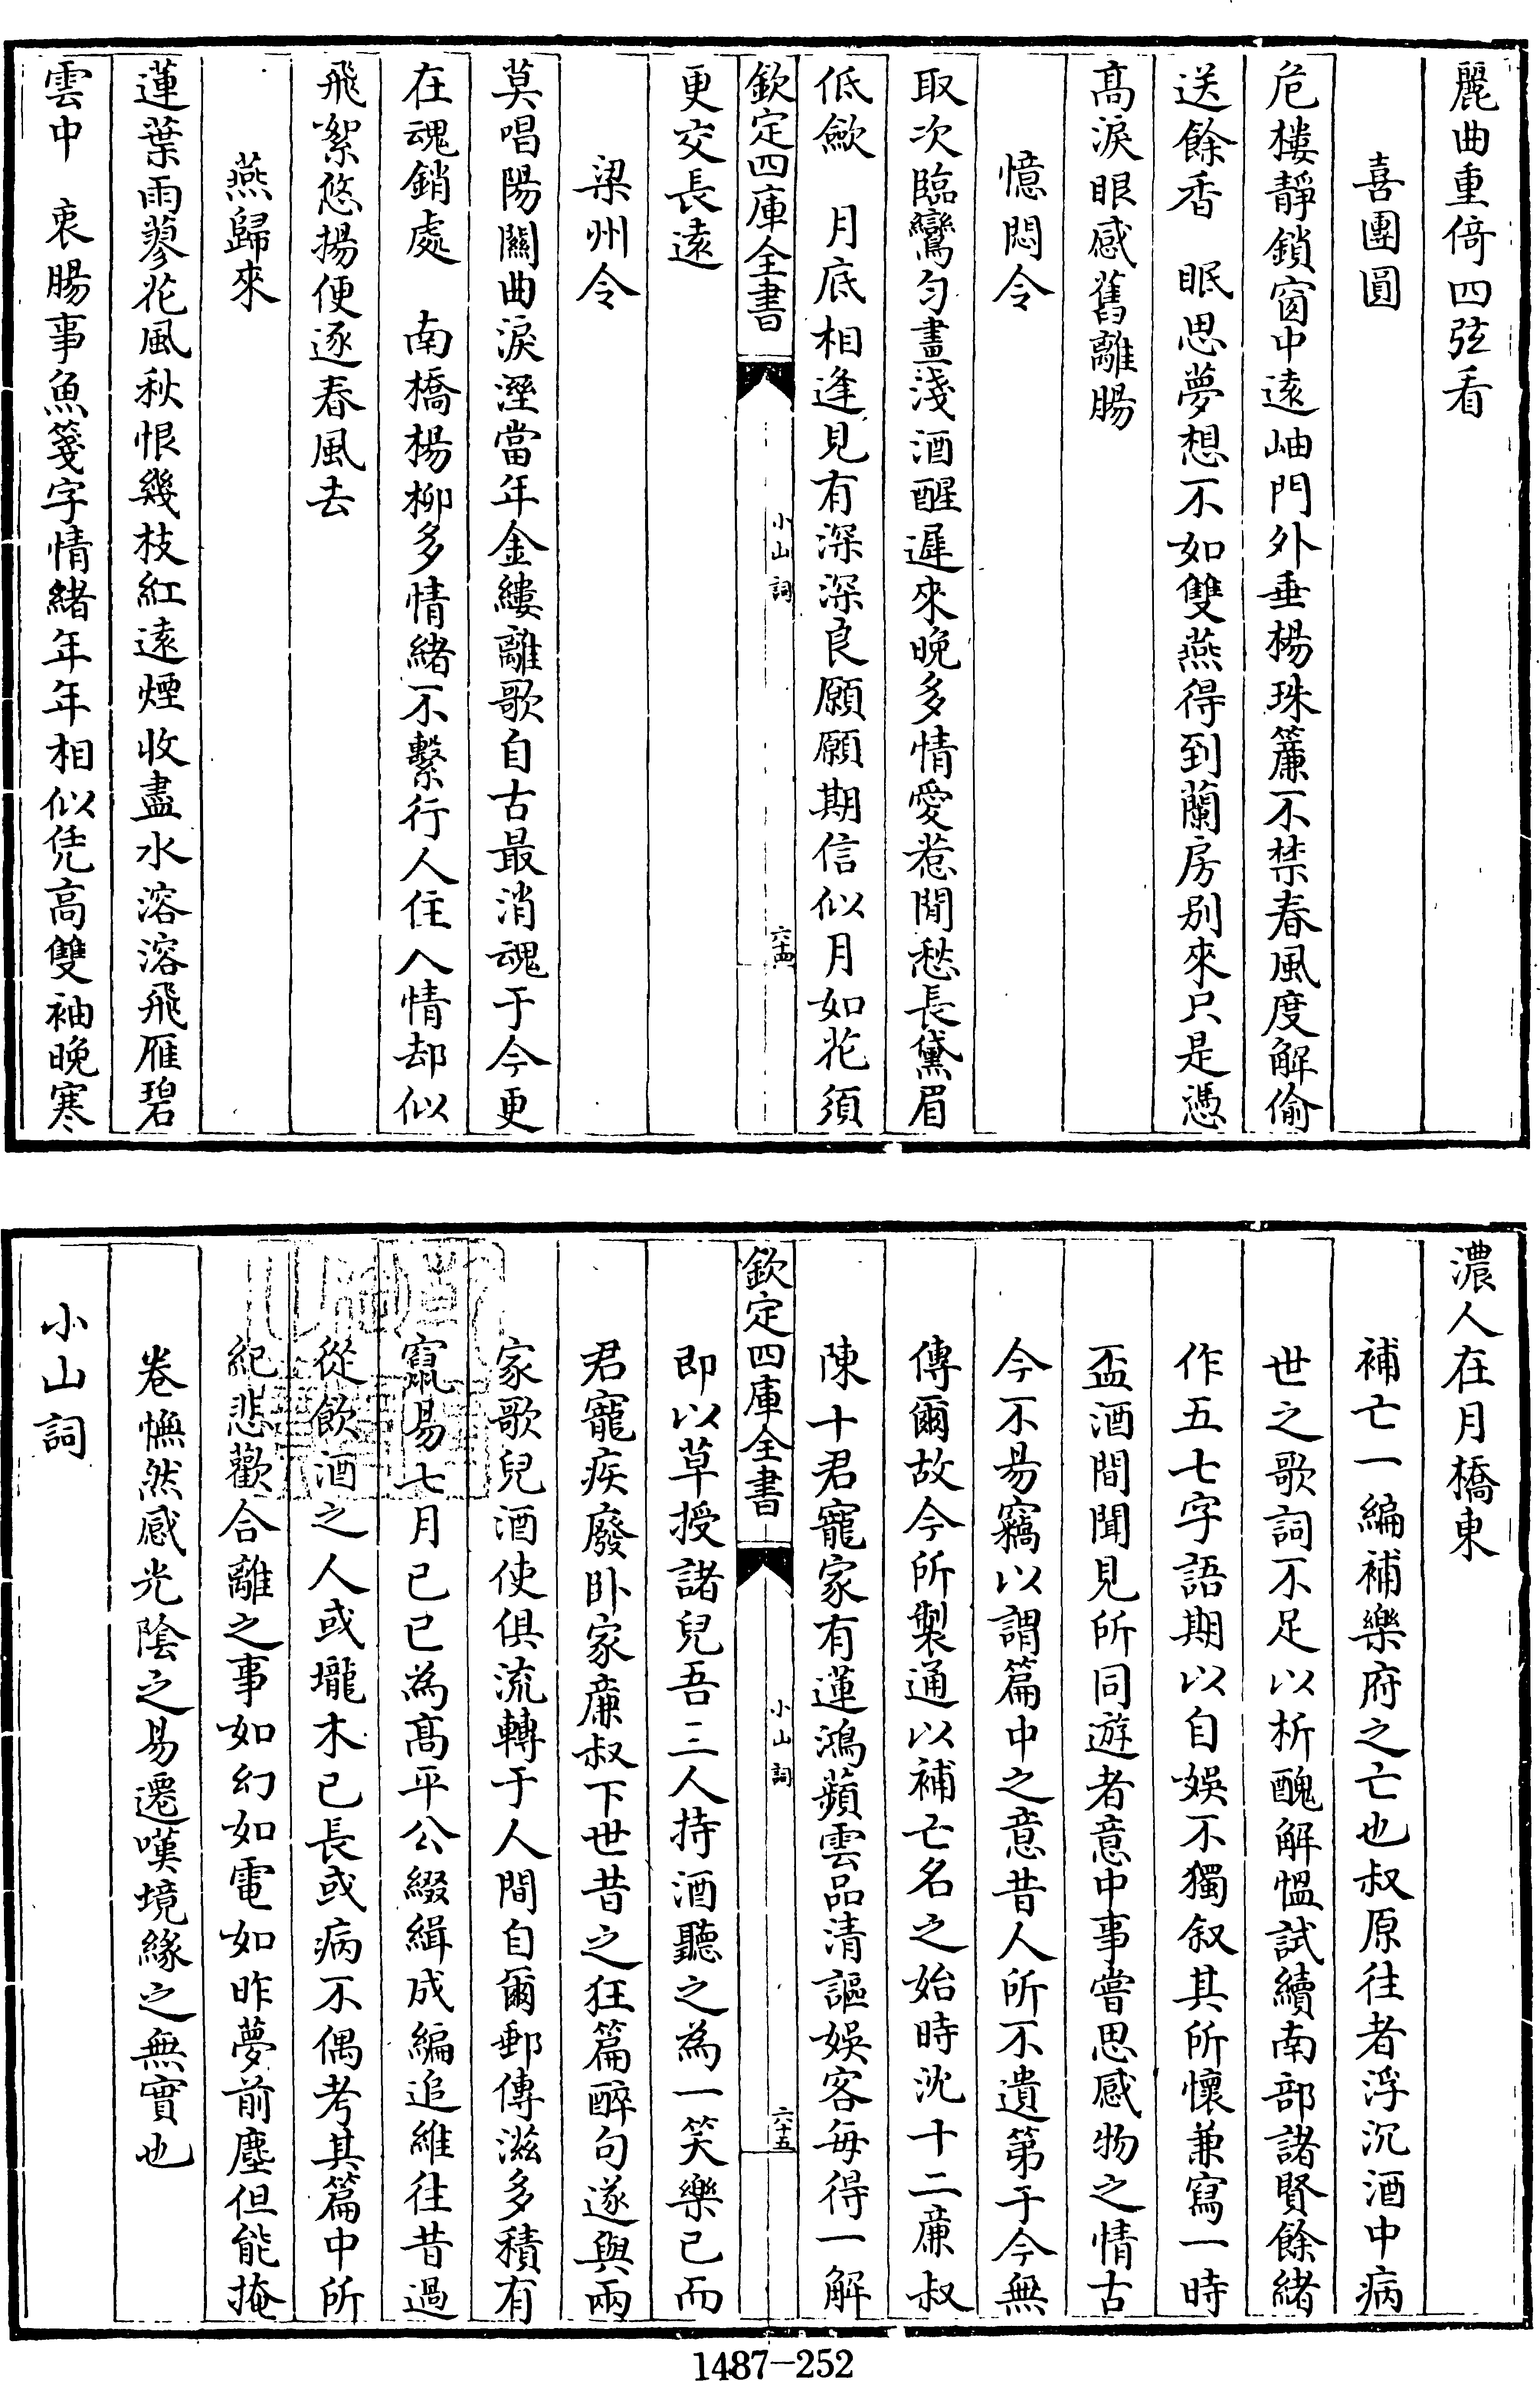 麗曲重倚四弦看
喜團圓
危樓靜鎖窗中逺岫門外垂楊珠簾不禁春風度解偷
送餘香　眠思夢想不如雙燕得到蘭房别來只是憑
髙淚眼感舊離腸
憶悶令
取次臨鸞匀畫淺酒醒遲來晚多情愛惹閒愁長黛眉
低歛　月底相逢見有深深良願願期信似月如花須
欽定四庫全書
小山詞
六十四
更交長逺
梁州令
莫唱陽關曲淚溼當年金縷離歌自古最消魂于今更
在魂銷處　南橋楊栁多情緒不繫行人住人情却似
飛絮悠揚便逐春風去
燕歸來
蓮葉雨蓼花風秋恨幾枝紅逺煙收盡水溶溶飛雁碧
雲中　衷腸事魚箋字情緒年年相似凭高雙袖晚寒
濃人在月橋東
補亡一編補樂府之亡也叔原往者浮沉酒中病
世之歌詞不足以析醜解慍試續南部諸賢餘緒
作五七字語期以自娛不獨叙其所懷兼寫一時
盃酒間聞見所同遊者意中事嘗思感物之情古
今不易竊以謂篇中之意昔人所不遺第于今無
傳爾故今所製通以補亡名之始時沈十二亷叔
陳十君寵家有蓮鴻蘋雲品清謳娛客每得一解
欽定四庫全書
小山詞
六十五
即以草授諸兒吾三人持酒聽之為一笑樂已而
君寵疾廢卧家亷叔下世昔之狂篇醉句遂與兩
家歌兒酒使俱流轉于人間自爾郵傳滋多積有
竄易七月己巳為髙平公綴緝成編追維往昔過
從飲酒之人或壠木已長或病不偶考其篇中所
紀悲歡合離之事如幻如電如昨夢前塵但能掩
卷憮然感光隂之易遷嘆境緣之無實也
小山詞
1487-252